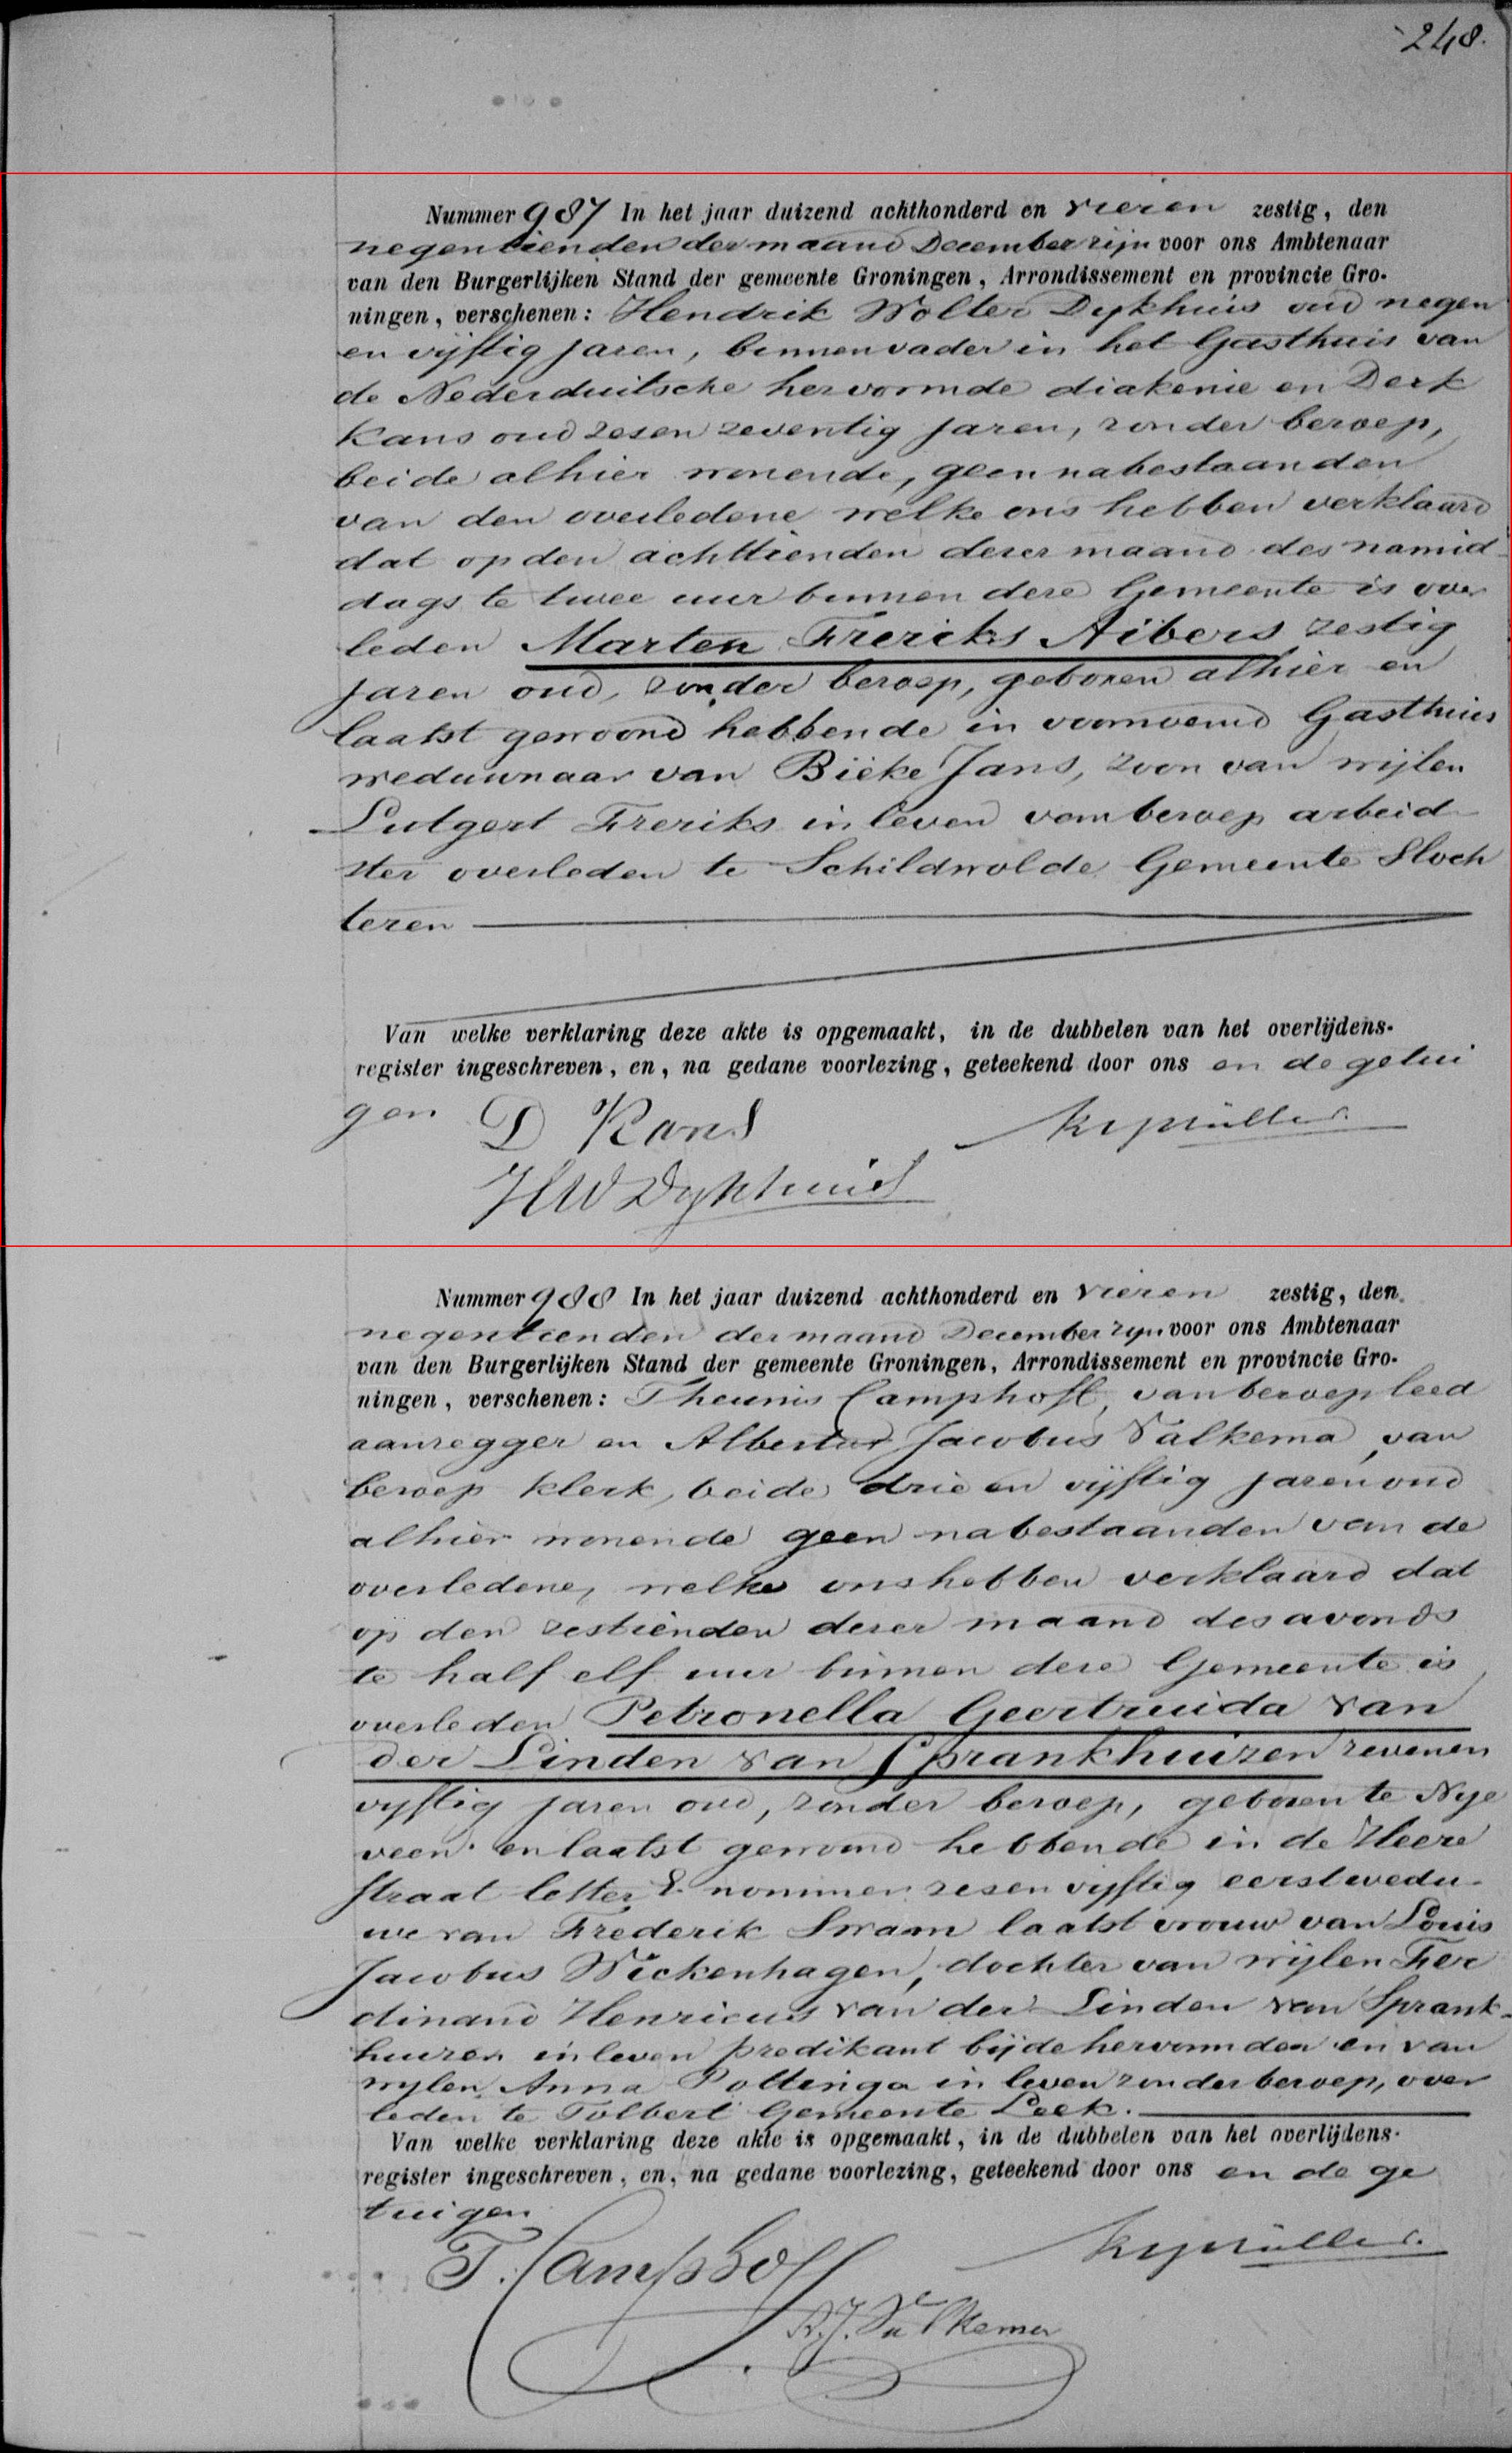 248.
Nummer 987 In het jaar duizend achthonderd en vieren zestig, den
negentienden der maand December zijn voor ons Ambtenaar
van den Burgerlijken Stand der gemeente Groningen, Arrondissement en provincie Gro-
ningen, verschenen: Hendrik Wolter Dykhuis oud negen
en vijftig jaren, binnenvader in het Gasthuis van
de Nederduitsche hervormde diakenie en Derk
Kans oud zesen zeventig jaren, zonder beroep,
beide alhier wonende, geen nabestaanden
van den overledene welke ons hebben verklaard
dat op den achttienden dezer maand des namid-
dags te twee uur binnen deze Gemeente is over
leden Marten Freriks Aibers zestig
jaren oud, zonder beroep, geboren alhier en
laatst gewoond hebbende in voornoemd Gasthuis
weduwnaar van Bieke Jans, zoon van wijlen
Lutgert Freriks in leven van beroep arbeid-
ster overleden te Schildwolde Gemeente Sloch
teren
Van welke verklaring deze akte is opgemaakt, in de dubbelen van het overlijdens-
register ingeschreven, en, na gedane voorlezing, geteekend door ons en de getui
gen D Kans
HW Dykhuis
Nummer 988 In het jaar duizend achthonderd en vieren zestig, den
negentienden der maand December zyn voor ons Ambtenaar
van den Burgerlijken Stand der gemeente Groningen, Arrondissement en provincie Gro-
ningen, verschenen: Theunis Camphoff, van beroep leed
aanzegger en Albertus Jacobus Valkema, van
beroep klerk, beide drie en vijftig jaren oud
alhier wonende geen nabestaanden van de
overledene, welke ons hebben verklaard dat
op den zestienden dezer maand des avonds
te half elf uur binnen deze Gemeente is
overleden Petronella Geertruida van
der Linden van Sprankhuizen zevenen
vyftig jaren oud, zonder beroep, geboren te Nye
veen en laatst gewoond hebbende in de Heere
straat letter E nommer zesen vijftig eerst wedu-
we van Frederik Swaan laatst vrouw van Louis
Jacobus Wickenhagen, dochter van wijlen Fer
dinand Henricus van der Linden van Sprank-
huizen in leven predikant bij de hervormden en van
wylen Anna Pottinga in leven zonder beroep, over
leden te Tolbert Gemeente Leek.
Van welke verklaring deze akte is opgemaakt, in de dubbelen van het overlijdens-
register ingeschreven, en, na gedane voorlezing, geteekend door ons en de ge
tuigen
T. Camphoff
A. J. Valkema